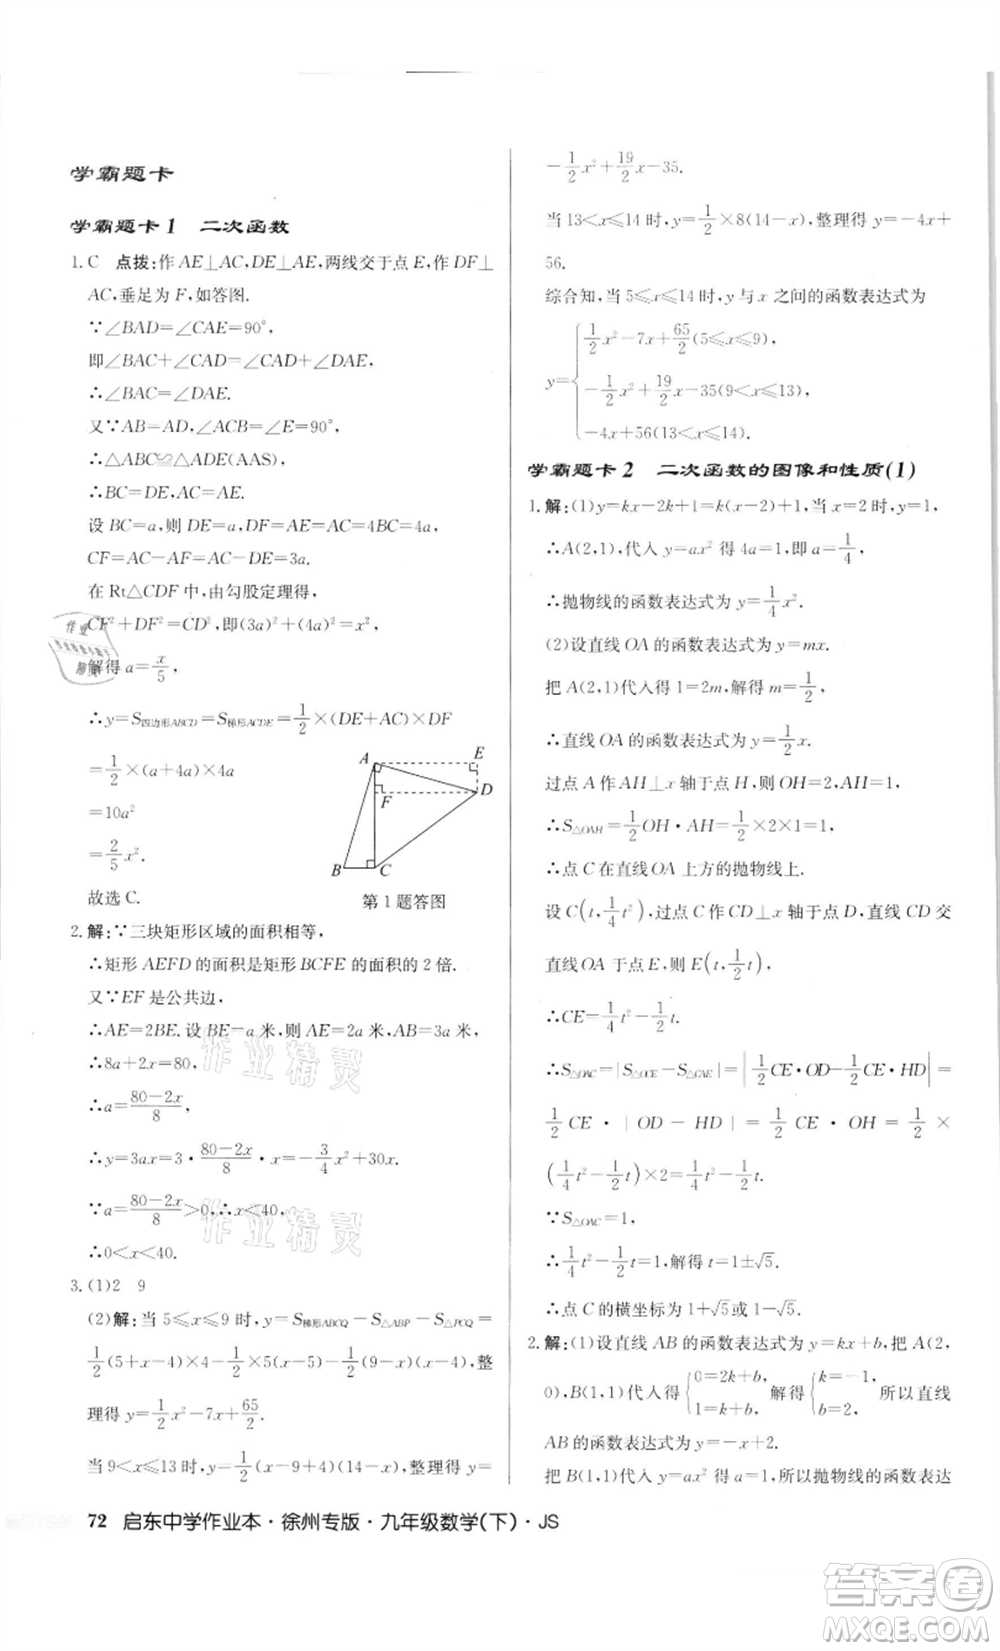 学霸题卡
学霸题卡1 二次函数
1.C 点拨:作 AE⊥AC,DE⊥AE,两线交于点 E,作 DF⊥
AC,垂足为 F,如答图.
∵∠BAD=∠CAE=90°,
即∠BAC+∠CAD=∠CAD+∠DAE,
∴∠BAC=∠DAE.
又∵AB=AD,∠ACB=∠E=90°,
∴△ABC≌△ADE(AAS).
设 BC=a,则 DE=a,DF=AE=AC=4BC=4a,
CF=AC-AF=AC-DE=3a.
在 Rt△CDF 中,由勾股定理得,
CF²+DF²=CD²,即(3a)²+(4a)²=x²,
解得 a=x/5,
∴y=S四边形ABCD=S梯形ACDE=1/2×(DE+AC)×DF
=1/2×(a+4a)×4a
=10a²
=2/5x².
故选 C.
A E F D B C
第 1 题答图
2.解:∵三块矩形区域的面积相等,
∴矩形 AEFD 的面积是矩形 BCFE 的面积的 2 倍.
又∵EF 是公共边,
∴AE=2BE.设 BE=a 米,则 AE=2a 米,AB=3a 米,
∴8a+2x=80,
∴a=(80-2x)/8,
∴y=3xa=3·(80-2x)/8·x=-3/4x²+30x.
∵a=(80-2x)/8>0,∴x<40,
∴0<x<40.
3.(1)2 9
(2)解:当 5⩽x⩽9 时,y=S梯形ABCQ-S△ABP-S△PCQ=
1/2(5+x-4)×4-1/2×5(x-5)-1/2(9-x)(x-4),整
理得 y=1/2x²-7x+65/2.
当 9<x⩽13 时,y=1/2(x-9+4)(14-x),整理得 y=
-1/2x²+19/2x-35.
当 13<x⩽14 时,y=1/2×8(14-x),整理得 y=-4x+
56.
综合知,当 5⩽x⩽14 时,y 与 x 之间的函数表达式为
y={1/2x²-7x+65/2(5⩽x⩽9),
-1/2x²+19/2x-35(9<x⩽13),
-4x+56(13<x⩽14).
学霸题卡2 二次函数的图像和性质(1)
1.解:(1)y=kx-2k+1=k(x-2)+1,当 x=2 时,y=1,
∴A(2,1),代入 y=ax² 得 4a=1,即 a=1/4,
∴抛物线的函数表达式为 y=1/4x².
(2)设直线 OA 的函数表达式为 y=mx.
把 A(2,1)代入得 1=2m,解得 m=1/2,
∴直线 OA 的函数表达式为 y=1/2x.
过点 A 作 AH⊥x 轴于点 H,则 OH=2,AH=1,
∴S△OAH=1/2OH·AH=1/2×2×1=1.
∴点 C 在直线 OA 上方的抛物线上.
设 C(t,1/4t²),过点 C 作 CD⊥x 轴于点 D,直线 CD 交
直线 OA 于点 E,则 E(t,1/2t),
∴CE=1/4t²-1/2t.
∴S△OAC=|S△OCE-S△CAE|=|1/2CE·OD-1/2CE·HD|=
1/2CE·|OD-HD|=1/2CE·OH=1/2×
(1/4t²-1/2t)×2=1/4t²-1/2t.
∵S△OAC=1,
∴1/4t²-1/2t=1,解得 t=1±√5.
∴点 C 的横坐标为 1+√5或 1-√5.
2.解:(1)设直线 AB 的函数表达式为 y=kx+b,把 A(2,
0),B(1,1)代入得{0=2k+b,1=k+b,解得{k=-1,b=2,所以直线
AB 的函数表达式为 y=-x+2.
把 B(1,1)代入 y=ax² 得 a=1,所以抛物线的函数表达
72 启东中学作业本·徐州专版·九年级数学(下)·JS
作业精灵
作业精灵
答案卷
MXQE.COM